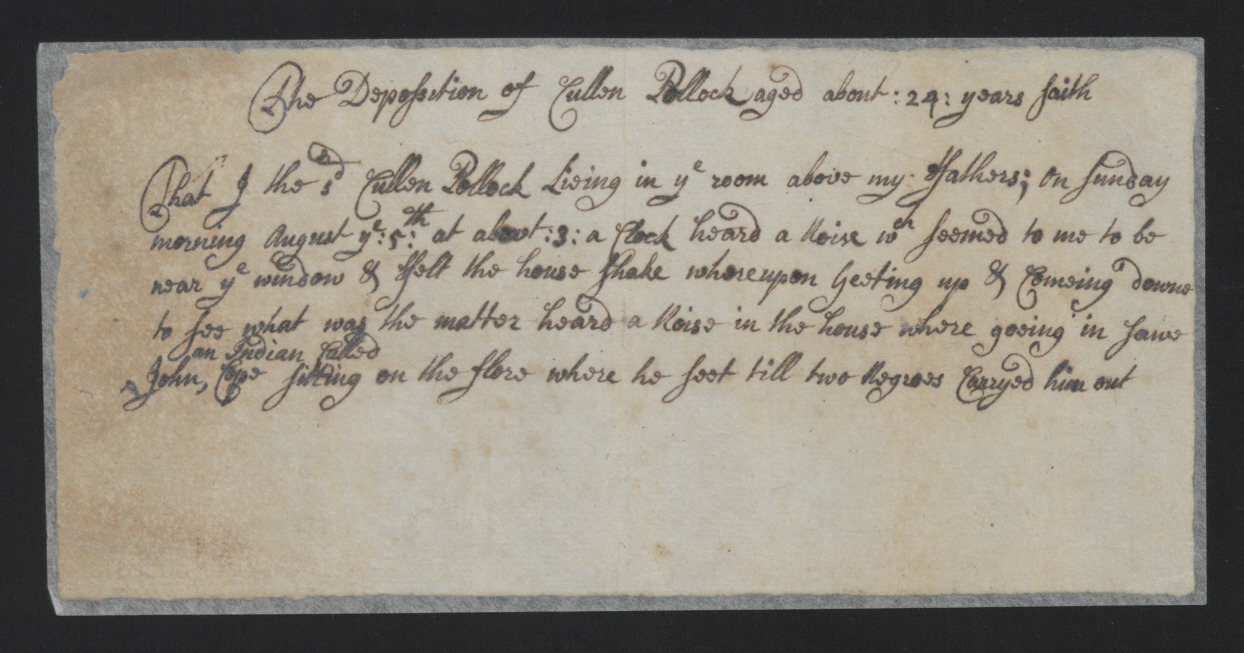 The Deposition of Cullen Pollock aged about :24: years saith
That J the sd Cullen Pollock Lieing in ye room above my ffathers; On Sunday
morning August ye:5:th at about :3: a Clock heard a Noise wch seemed to me to be
near ye window & ffelt the house shake whereupon Geeting up & Comeing downe
to see what was the matter heard a Noise in the house where goeing in sawe
an Indian Called
John, Cope sitting on the flore where he seet till two Negroes Carryed him out